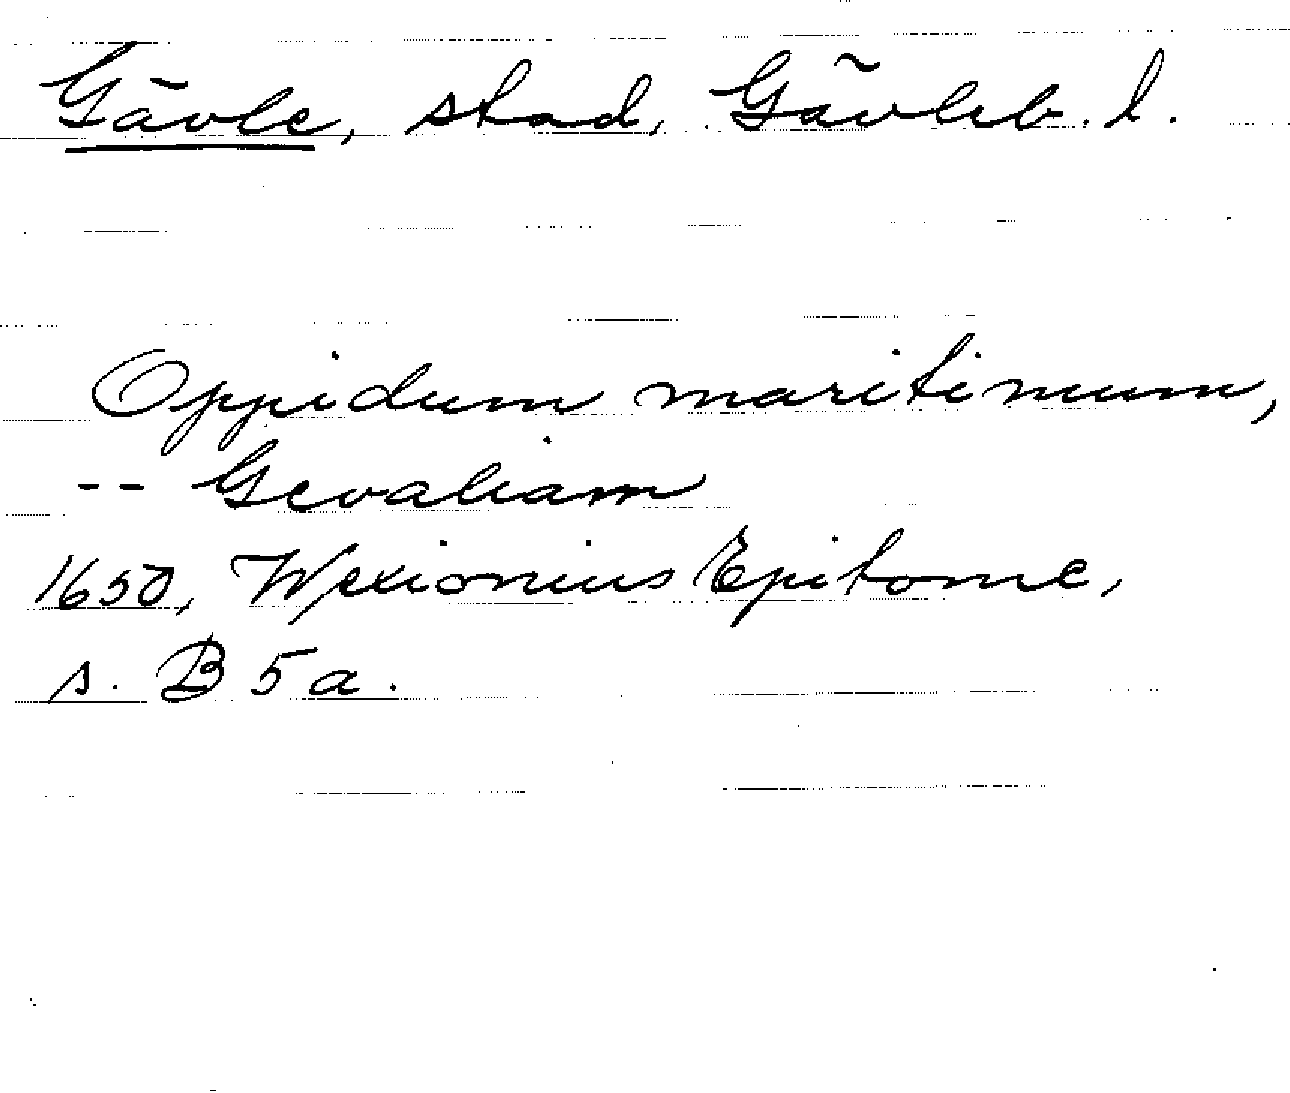 Gävle, stad, Gävleb. l.
Oppidum maritimum,
-- Gevaliam
1650, Wexionius Epitome,
s. B 5 a.